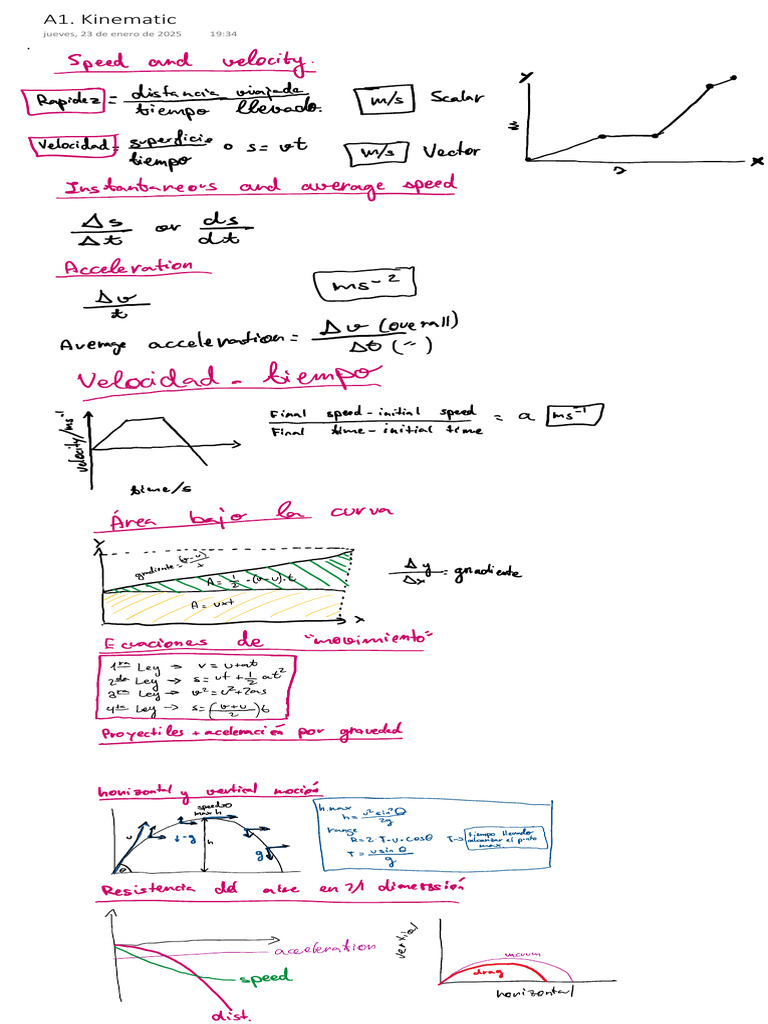 A1. Kinematic
jueves, 23 de enero de 2025 19:34
Speed and velocity.
Rapidez = distancia viajada / tiempo llevado. m/s Scalar
Velocidad = superficie / tiempo o s = vt m/s Vector
y
x
Instantaneous and average speed
Δs/Δt or ds/dt
Acceleration
Δv/t ms⁻²
Average acceleration = Δv (overall) / Δt (")
Velocidad - tiempo
velocity/ms⁻¹
time/s
Final speed - initial speed / Final time - initial time = a ms⁻¹
Área bajo la curva
y
gradiente = (v-u)/t
A = ½ · (v-u) · t
A = uxt
x
Δy/Δx = gradiente
Ecuaciones de "movimiento"
1ra Ley → v = u+at
2da Ley → s = ut + ½ at²
3ra Ley → v² = u²+2as
4ta Ley → s = ((v+u)/2)t
Proyectiles + aceleración por gravedad
horizontal y vertical moción
speed=0
max h
u
↓-g
h
g
θ
h. max
h = u² sin² θ / 2g
range
R = 2·T·u·cosθ T → tiempo llevado alcanzar el punto max
T = u sin θ / g
Resistencia del aire en 2/1 dimensión
acceleration
speed
dist.
vertical
vacuum
drag
horizontal